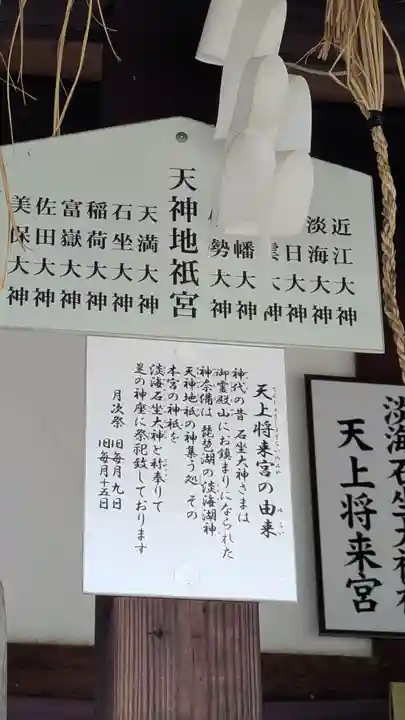 近江大神
淡海大神
日大神
大神
幡大神
勢大神
天神地祇宮
天満大神
石坐大神
稲荷大神
富嶽大神
佐田大神
美保大神
天上将来宮の由来
神代の昔 石坐大神さまは
御霊殿山にお鎮まりになられた
神奈備は 琵琶湖の淡海湖神
天神地祇の神集う処 その
本宮の神祇を
淡海石坐大神と称奉りて
是の神座に祭祀致しております
月次祭 旧毎月九日
旧毎月十五日
淡海石坐大神
天上将来宮